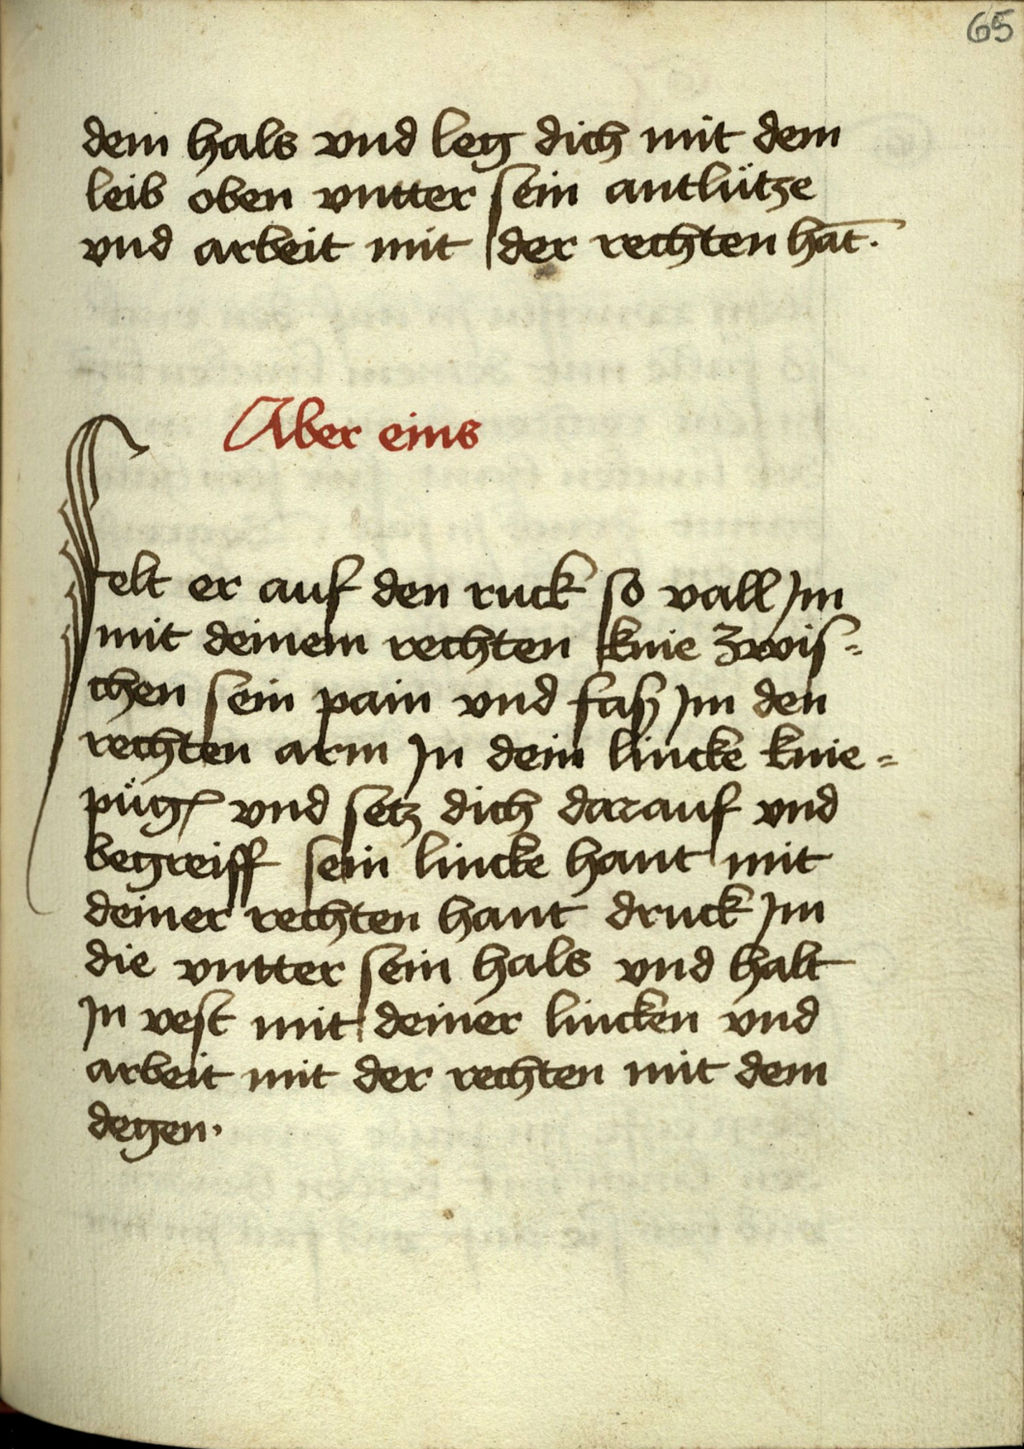 65
dem hals vnd leg dich mit dem
leib oben vntter sein antlütze
vnd arbeit mit der rechten hāt.
Aber eins
Felt er auf den ruck so vall Jm
mit deinem rechten knie zwis=
chen sein pain vnd faß Jm den
rechten arm Jn dein lincke knie=
püg vnd setz dich darauf vnd
begreiff sein lincke hant mit
deiner rechten hant druck Jm
die vntter sein hals vnd halt
Jn vest mit deiner lincken vnd
arbeit mit der rechten mit dem
degen.